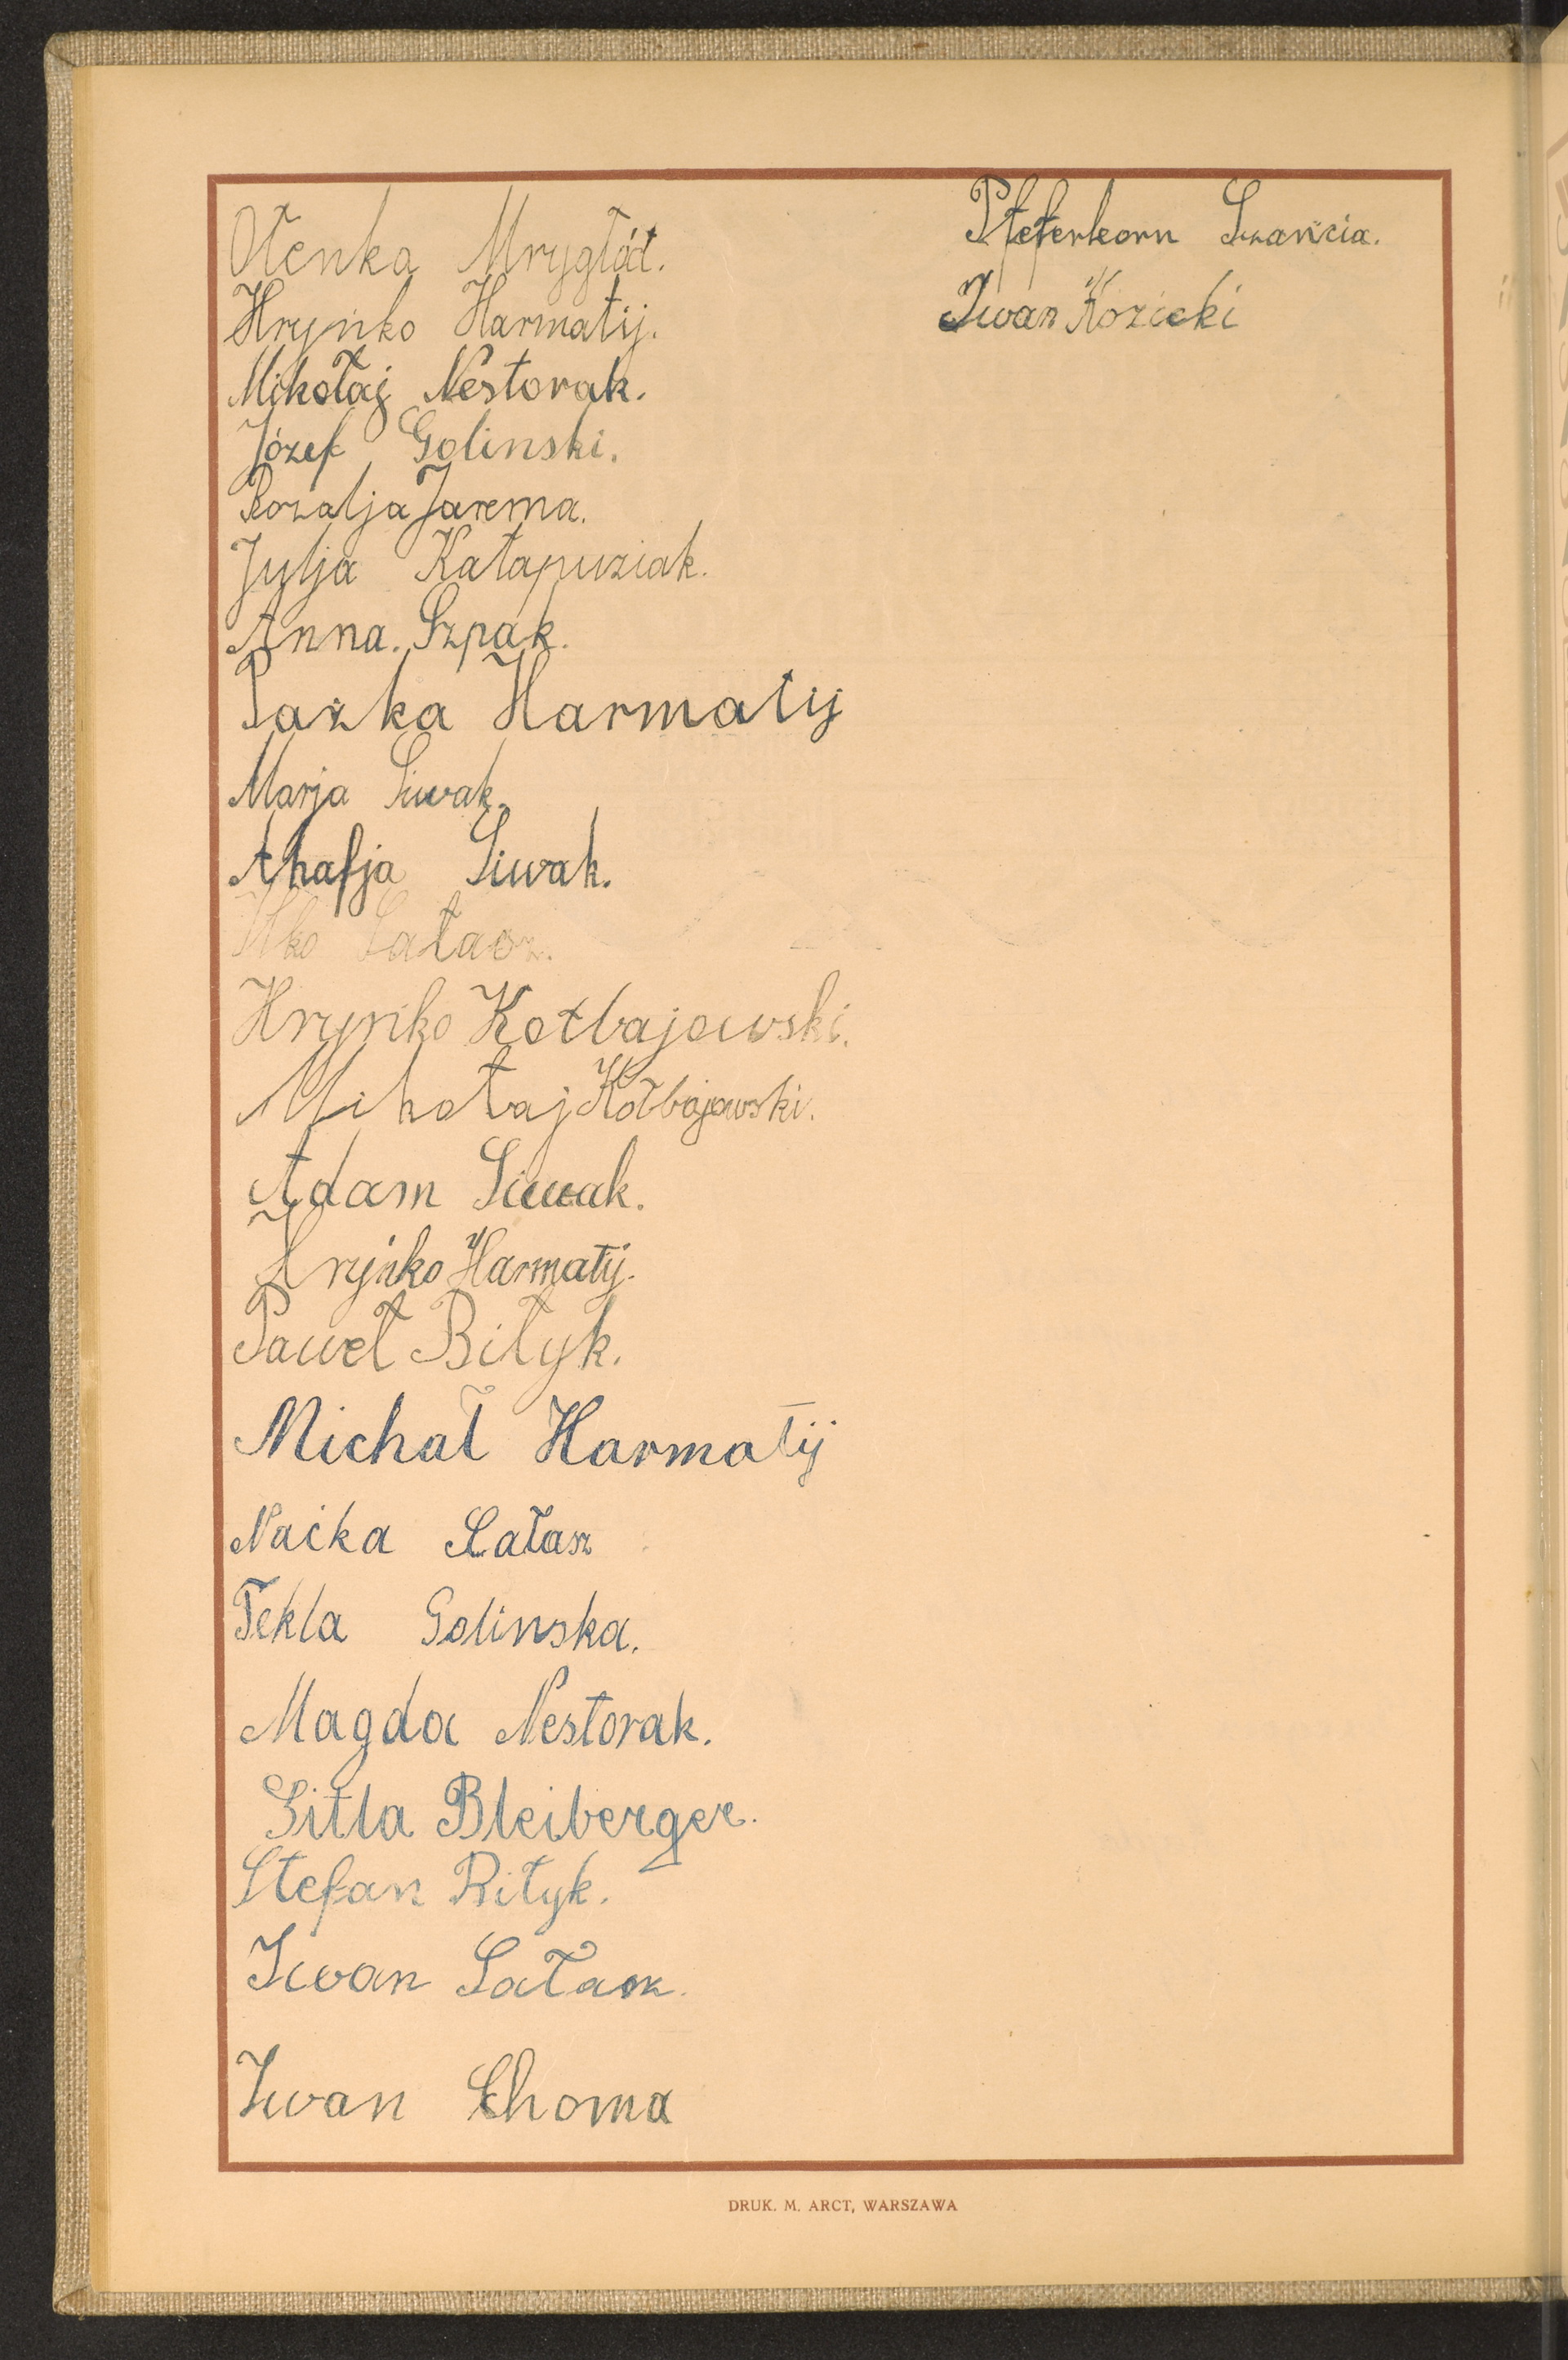 Ołenka Mrygłód.
Hryńko Harmatij.
Mikołaj Nestorak.
Józef Golinski.
Rozalja Jarema.
Jylja Kałapuziak.
Anna. Szpak.
Pazka Harmatij
Marja Siwak.
Ahafja Siwak.
Ilko Sałasz.
Hryńko Kołbajowski.
Mikołaj Kołbajowski.
Adam Siwak.
Hryńko Harmatij.
Paweł Biłyk.
Michał Harmatij
Naćka Sałasz
Tekla Golinska.
Magda Nestorak.
Gitla Bleiberger.
Stefan Biłyk.
Iwan Sałasz.
Iwan Choma
Pfeferkorn Szańcia.
Iwan Kozicki
DRUK. M. ARCT, WARSZAWA